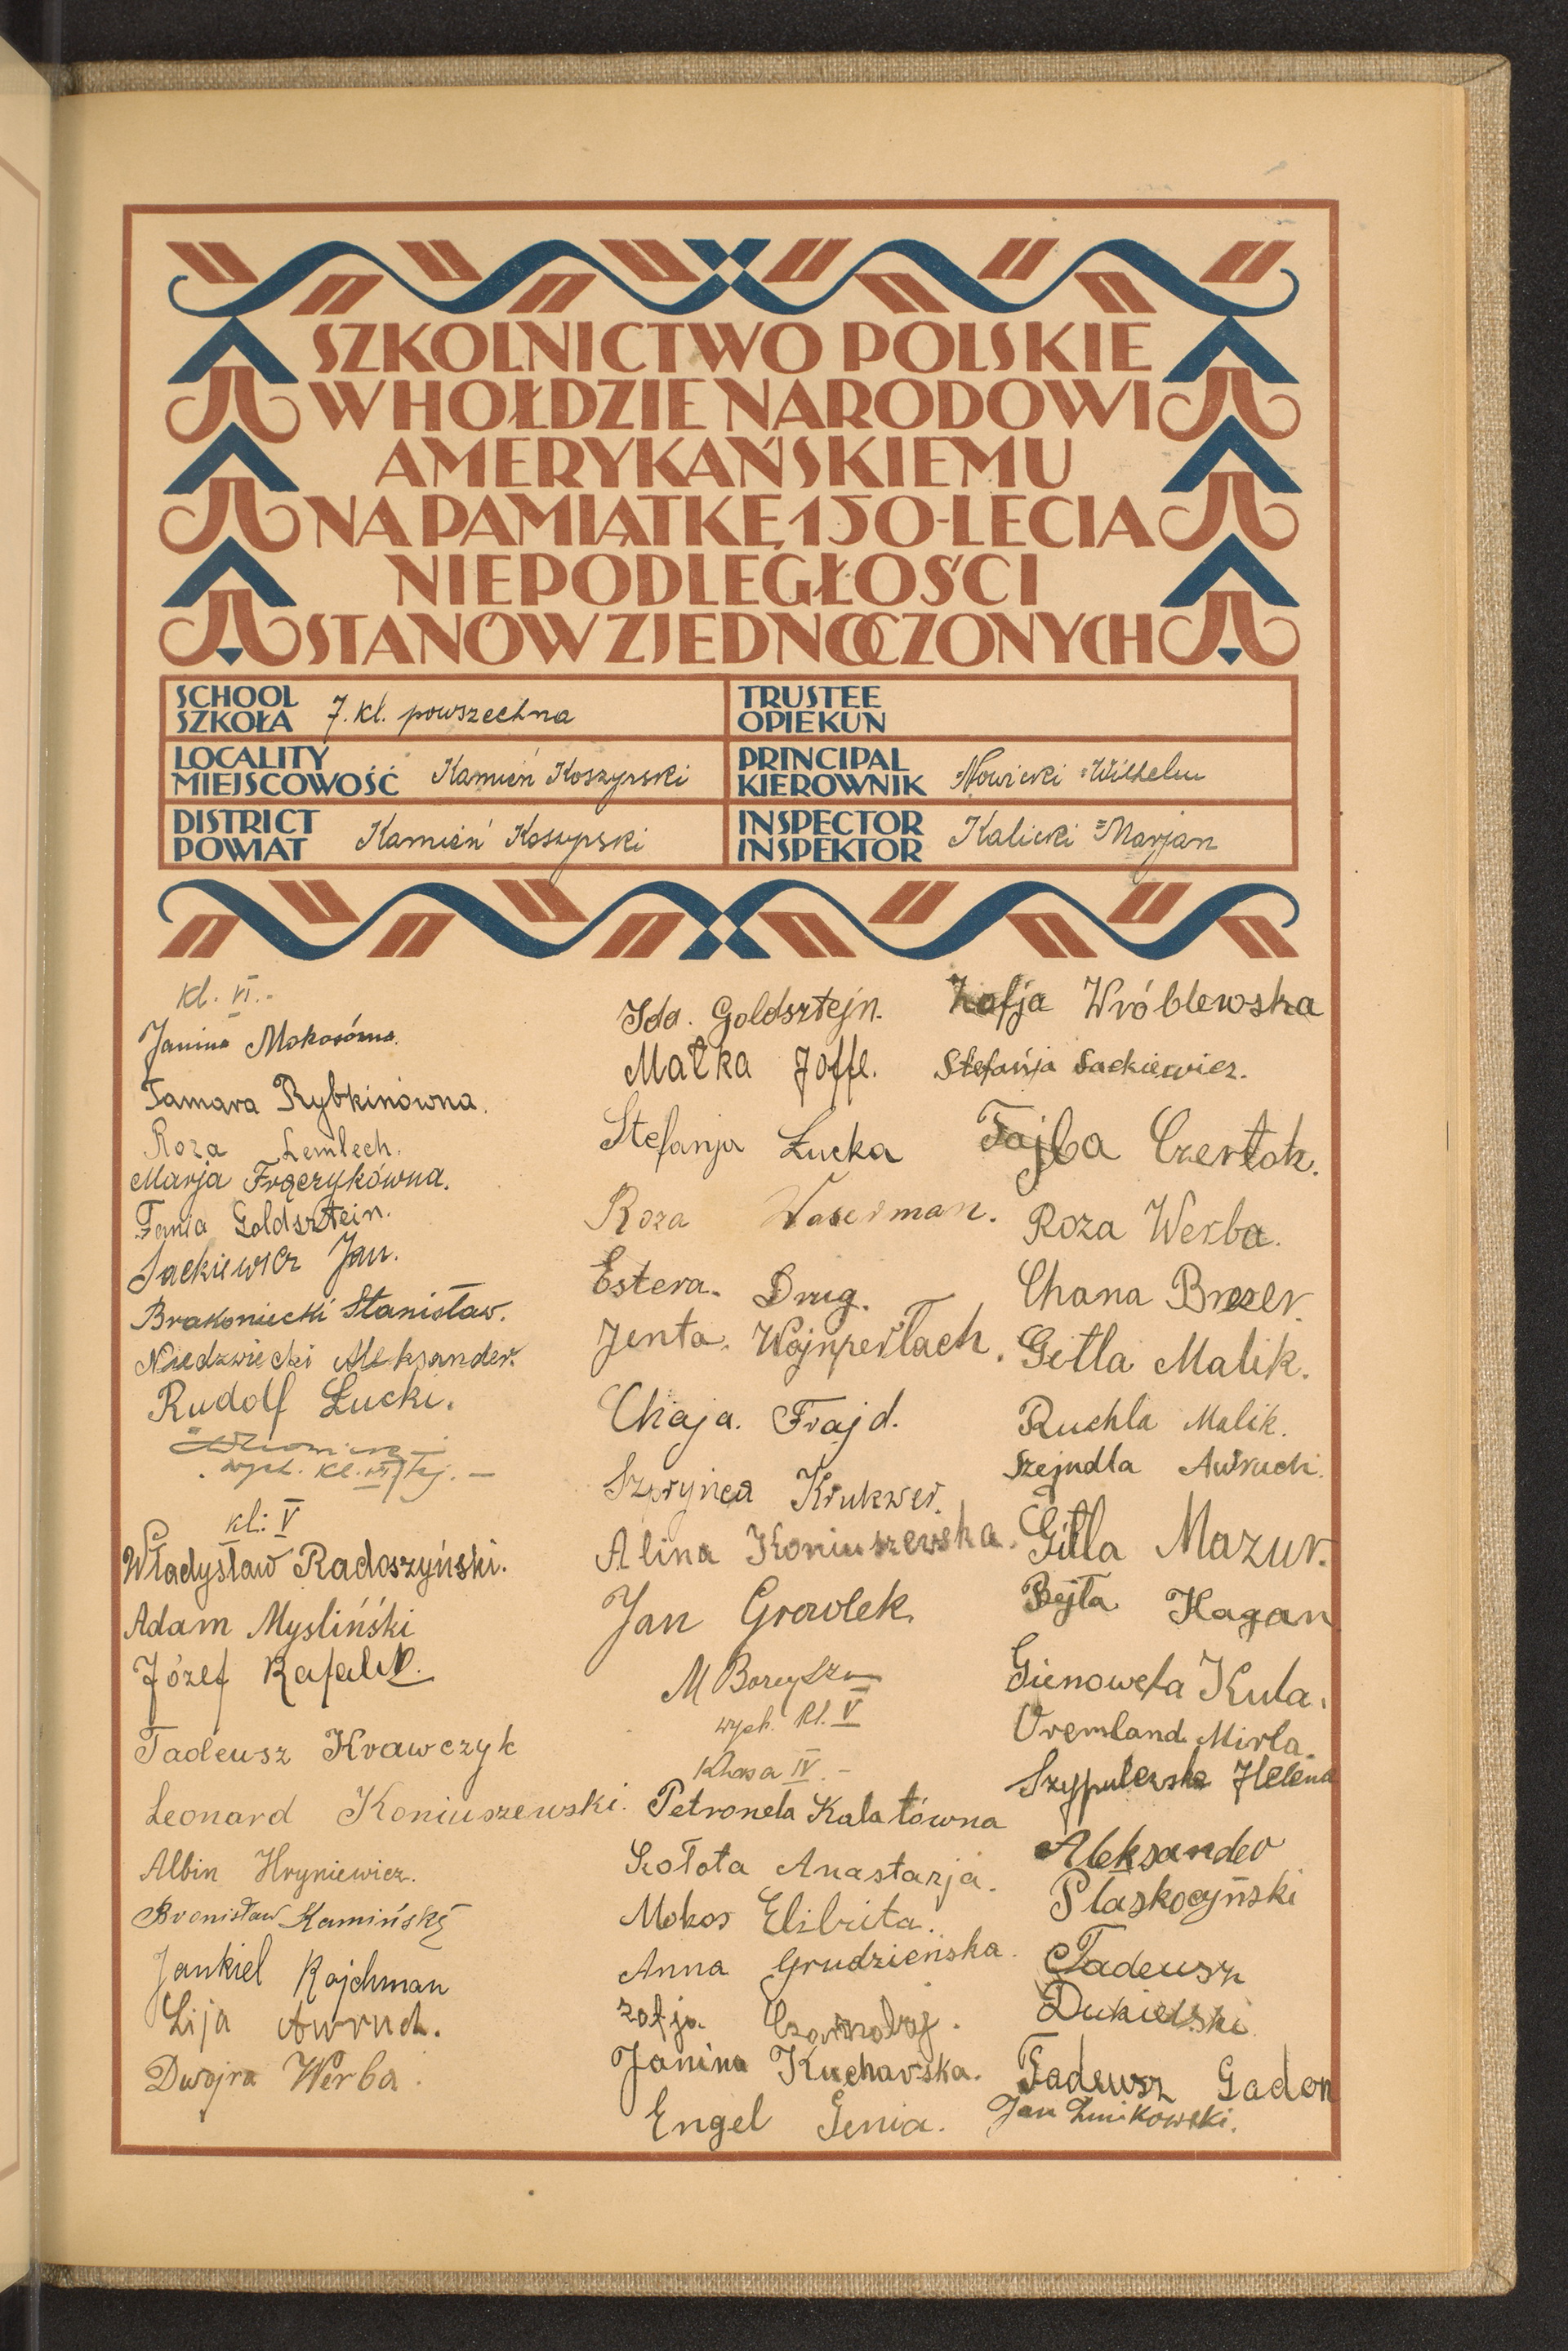 SZKOLNICTWO POLSKIE
W HOŁDZIE NARODOWI
AMERYKAŃSKIEMU
NA PAMIĄTKĘ 150-LECIA
NIEPODLEGŁOŚCI
STANÓW ZJEDNOCZONYCH
SCHOOL
SZKOŁA 7. kl. powszechna
TRUSTEE
OPIEKUN
LOCALITY
MIEJSCOWOŚĆ Kamień Koszyrski
PRINCIPAL
KIEROWNIK Nowicki Wilhelm
DISTRICT
POWIAT Kamień Koszyrski
INSPECTOR
INSPEKTOR Kalicki Marjan
kl. VI.-
Janina Mokosówna.
Tamara Rybkinówna.
Roza Lemlech.
Marja Frączykówna.
Fania Goldsztein.
Sackiewicz Jan.
Brakoniecki Stanisław.
Niedzwiecki Aleksander.
Rudolf Łucki.
wych. kl. VI tej. -
kl: V
Władysław Radoszyński.
Adam Mysliński
Józef Rafalik.
Tadeusz Krawczyk
Leonard Koniuszewski.
Albin Hryniewicz.
Bronisław Kamiński
Jankiel Rajchman
Lija Awruch.
Dwojra Werba.
Ida. Goldsztejn.
Małka Joffe.
Stefanja Łucka
Roza Waserman.
Estera. Drug.
Jenta. Wajnperlach.
Chaja. Frajd.
Szprynca Krukwer.
Alina Koniuszewska.
Jan Growlek.
M Boreysza
wych. kl. V
Klasa IV. -
Petronela Kalatówna
Sołota Anastazja.
Mokos Elibrita.
Anna Grudzieńska.
Zofja
Janina Kucharska.
Engel Genia.
Zofja Wróblewska
Stefańja Sackiewicz.
Fajba Czertok.
Roza Werba.
Chana Brezer.
Gitla Malik.
Ruchla Malik.
Szejndla Awruch.
Gitla Mazur.
Bejla Kagan
Gienowefa Kula.
Vremland Mirla.
Szypulewska Helena
Aleksander
Plaskocyński
Tadeusz
Dukielski
Tadeusz Gadon
Jan Żmikowski.